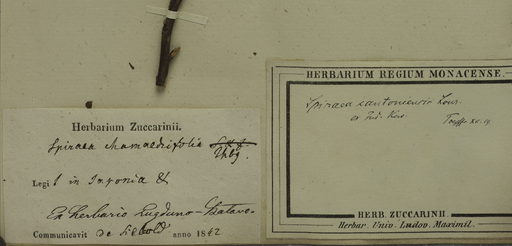 Herbarium Zuccarinii.
Spiraea chamaedrifolia
Thbg.
Legi in Japonia &
Ex herbario Lugduno-Batavo.
Communicavit de Siebold anno 1842
HERBARIUM REGIUM MONACENSE.
Spiraea cantoniensis Lour.
ex Ind. Kew
HERB. ZUCCARINII.
Herbar. Univ. Ludov. Maximil.